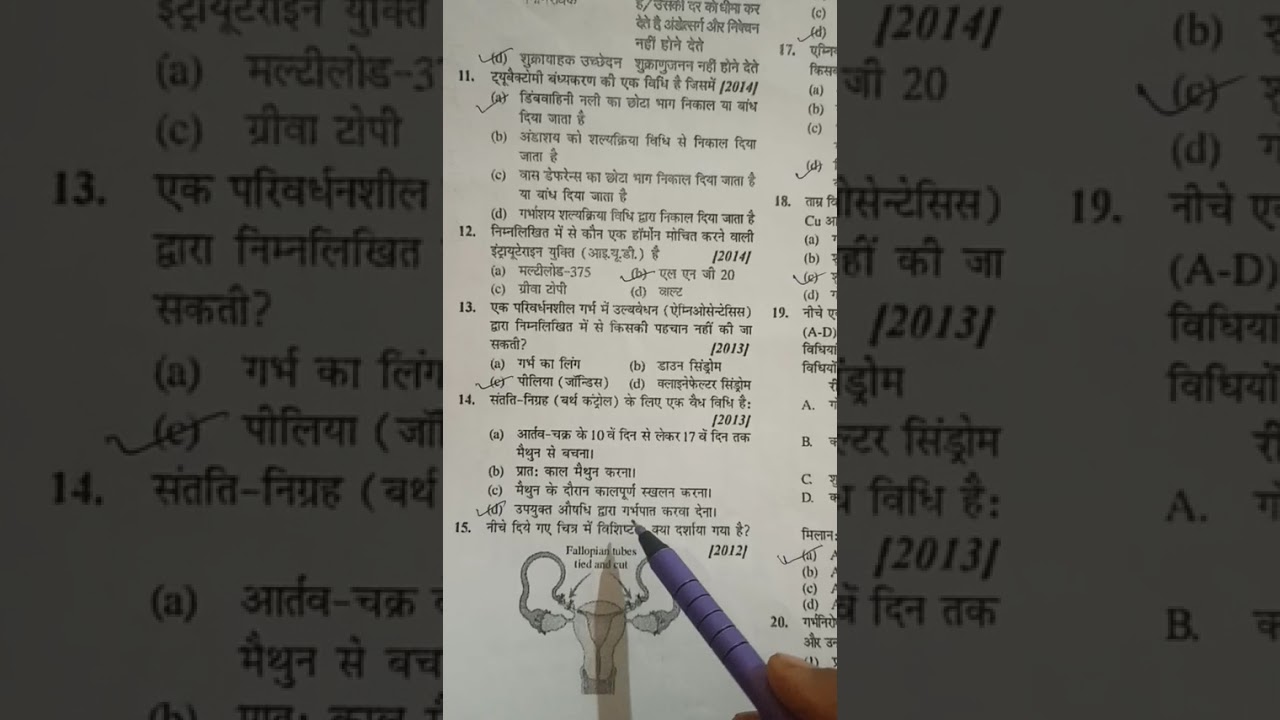 है/उसकी दर को धीमा कर
देते है अंडोत्सर्ग और निषेचन
नहीं होने देते
(d) शुक्रवाहक उच्छेदन शुक्राणुजनन नहीं होने देते
11. ट्यूबैक्टोमी बंध्यकरण की एक विधि है जिसमें [2014]
(a) डिंबवाहिनी नली का छोटा भाग निकाल या बांध
दिया जाता है
(b) अंडाशय को शल्यक्रिया विधि से निकाल दिया
जाता है
(c) वास डेफरेन्स का छोटा भाग निकाल दिया जाता है
या बांध दिया जाता है
(d) गर्भाशय शल्यक्रिया विधि द्वारा निकाल दिया जाता है
12. निम्नलिखित में से कौन एक हॉर्मोन मोचित करने वाली
इंट्रायूटेराइन युक्ति (आइ.यू.डी.) है [2014]
(a) मल्टीलोड-375 (b) एल एन जी 20
(c) ग्रीवा टोपी (d) वाल्ट
13. एक परिवर्धनशील गर्भ में उल्बवेधन (ऐम्निओसेन्टेसिस)
द्वारा निम्नलिखित में से किसकी पहचान नहीं की जा
सकती? [2013]
(a) गर्भ का लिंग (b) डाउन सिंड्रोम
(c) पीलिया (जॉन्डिस) (d) क्लाइनेफेल्टर सिंड्रोम
14. संतति-निग्रह (बर्थ कंट्रोल) के लिए एक वैध विधि है:
[2013]
(a) आर्तव-चक्र के 10 वें दिन से लेकर 17 वें दिन तक
मैथुन से बचना।
(b) प्रात: काल मैथुन करना।
(c) मैथुन के दौरान कालपूर्ण स्खलन करना।
(d) उपयुक्त औषधि द्वारा गर्भपात करवा देना।
15. नीचे दिये गए चित्र में क्या दर्शाया गया है?
[2012]
Fallopian tubes
tied and cut
(c)
(d)
17.
(a)
(b)
(c)
(d)
18. ताम्र
Cu
(a)
(b)
(c)
(d)
19. नीचे
(A-D)
A.
B.
C.
D.
मिलान:
(a)
(b)
(c)
(d)
20.
और